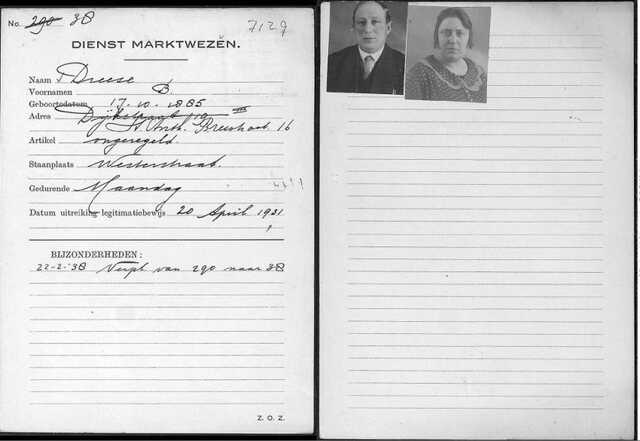 No. 290 38
7129
DIENST MARKTWEZEN.
Naam Dreese
Voornamen B.
Geboortedatum 17.10.1885
Adres Dijkstraat 19 III
St. Anth. Breestraat 16
Artikel ongeregeld.
Staanplaats Westerstraat.
Gedurende Maandag
Datum uitreiking legitimatiebewijs 20 April 1931
BIJZONDERHEDEN:
22-2-'38 Verpl van 290 naar 38
Z. O. Z.